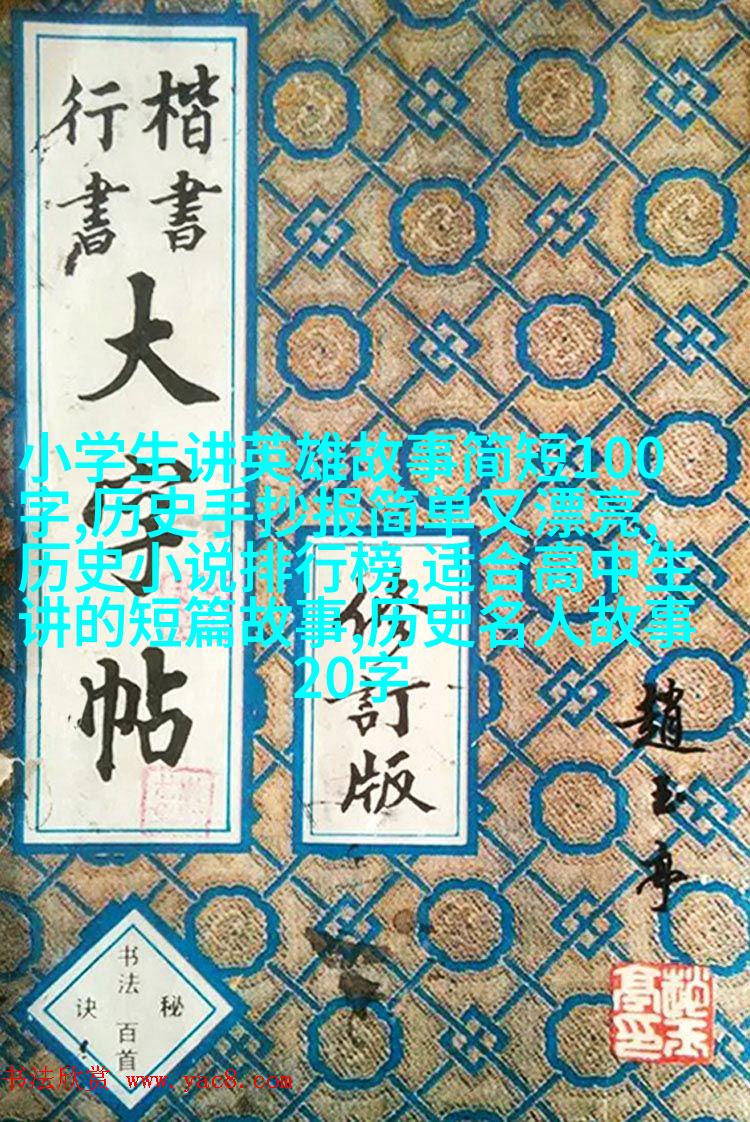 楷書
行書
大字帖
小学生讲英雄故事简短100
字,历史手抄报简单又漂亮,
历史小说排行榜,适合高中生
讲的短篇故事,历史名人故事
20字
修訂版
趙玉亭
书法百首
秘诀
书法欣赏 www.yac8.com